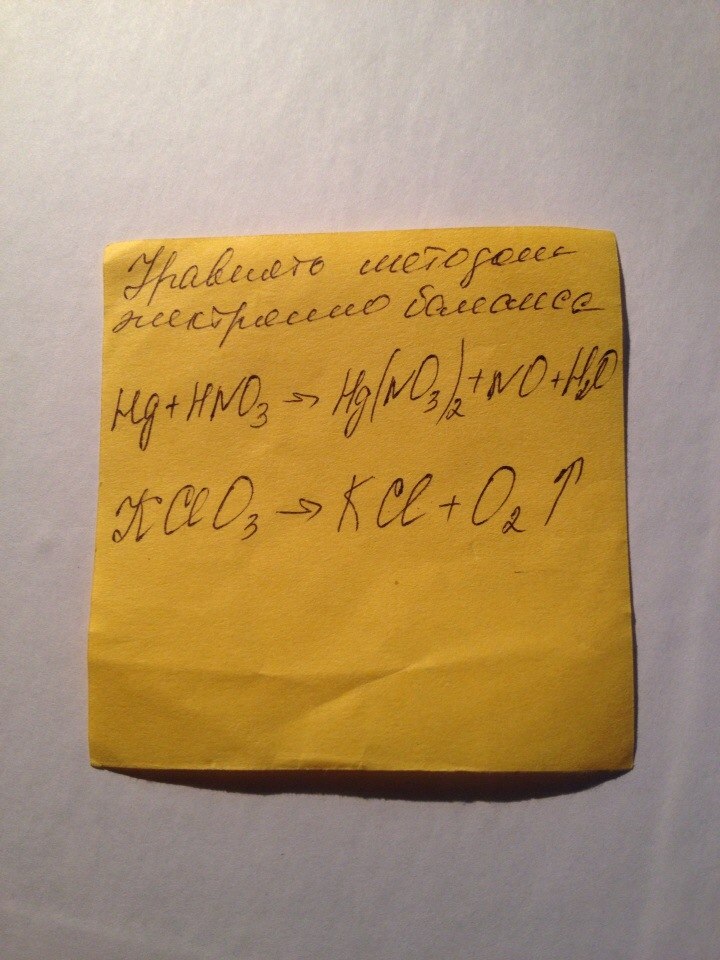 Уравнять методом
электронно баланса
Hg + HNO₃ → Hg(NO₃)₂ + NO + H₂O
KClO₃ → KCl + O₂ ↑